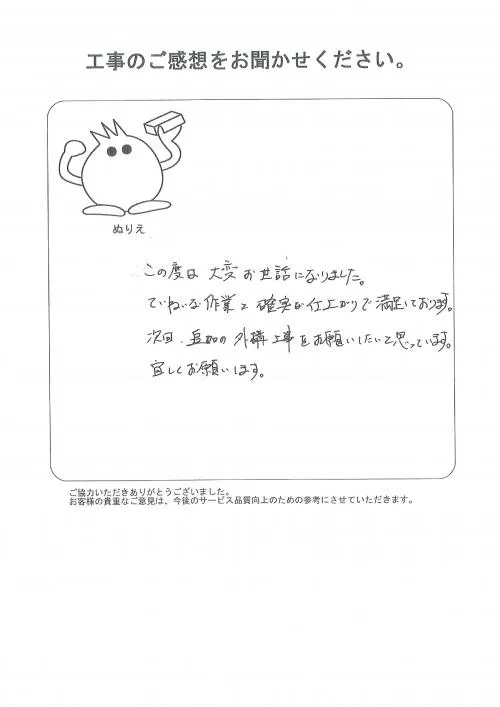 工事のご感想をお聞かせください。
ぬりえ
この度は 大変お世話になりました。
ていねいな作業と確実な仕上がりで満足しております。
次回、追加の外構工事をお願いしたいと思っています。
宜しくお願いします。
ご協力いただきありがとうございました。
お客様の貴重なご意見は、今後のサービス品質向上のための参考にさせていただきます。